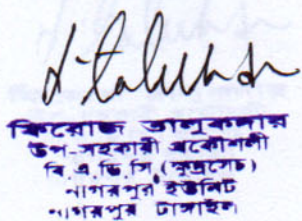 ফিরোজ তালুকদার
উপ-সহকারী প্রকৌশলী
বি,এ,ডি,সি,(ক্ষুদ্রসেচ)
নাগরপুর ইউনিট
নাগরপুর টাঙ্গাইল